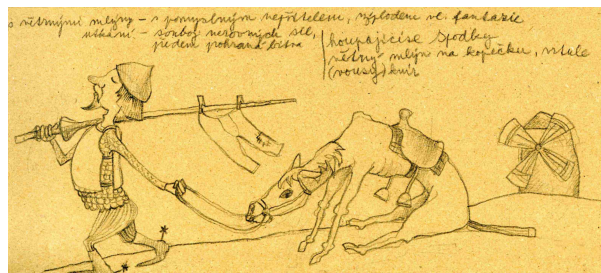 s větrnými mlýny – s pomyslným nepřítelem, výplodem vl. fantazie
utkání – souboj nerovných sil,
předem prohraná bitva
houpajícíse spodky
větrný mlýn na kopečku, vrtule
(vousy) knír